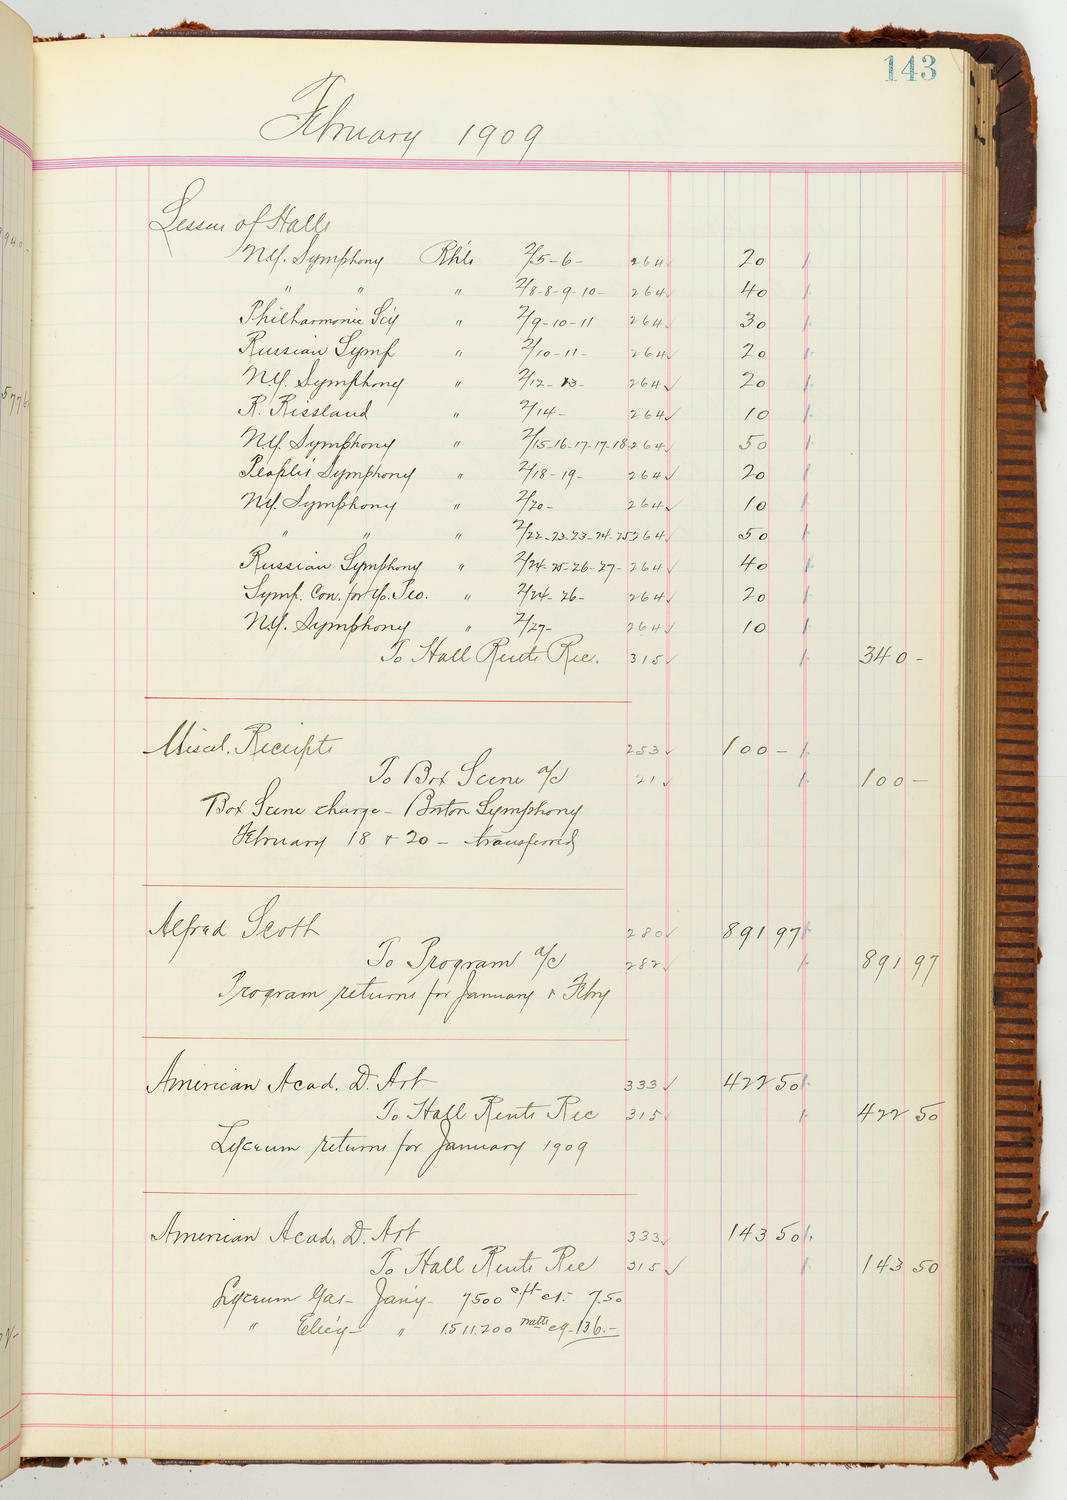 143
February 1909
Lessees of Halls
N.Y. Symphony Rh'ls 2/5-6- 264 ✓ 20
" " " 2/8-8-9-10- 264 ✓ 40
Philharmonic Sc'y " 2/9-10-11 264 ✓ 30
Russian Symp " 2/10-11- 264 ✓ 20
N.Y. Symphony " 2/12-13- 264 ✓ 20
R. Rissland " 2/14- 264 ✓ 10
N.Y. Symphony " 2/15-16-17-17-18 264 ✓ 50
People's Symphony " 2/18-19- 264 ✓ 20
N.Y. Symphony " 2/20- 264 ✓ 10
" " " 2/22-23-23-24-25 264 ✓ 50
Russian Symphony " 2/24-25-26-27- 264 ✓ 40
Symp. Con. for Yg. Peo. " 2/24-26- 264 ✓ 20
N.Y. Symphony " 2/27- 264 ✓ 10
To Hall Rents Rec. 315 ✓ 340 -
Miscel. Receipts 253 ✓ 100 -
To Box Scene a/c 21 ✓ 100 -
Box Scene charge - Boston Symphony
February 18 & 20 - transferred
Alfred Scott 280 ✓ 891 97
To Program a/c 282 ✓ 891 97
Program returns for January & Feby
American Acad. D. Art 333 ✓ 422 50
To Hall Rents Rec 315 ✓ 422 50
Lyceum returns for January 1909
American Acad. D. Art 333 ✓ 143 50
To Hall Rents Rec 315 ✓ 143 50
Lyceum Gas - Jan'y - 7500 c/ft ct. - 7.50
" Elec'y - " 1.511.200 watts eq - 136. -